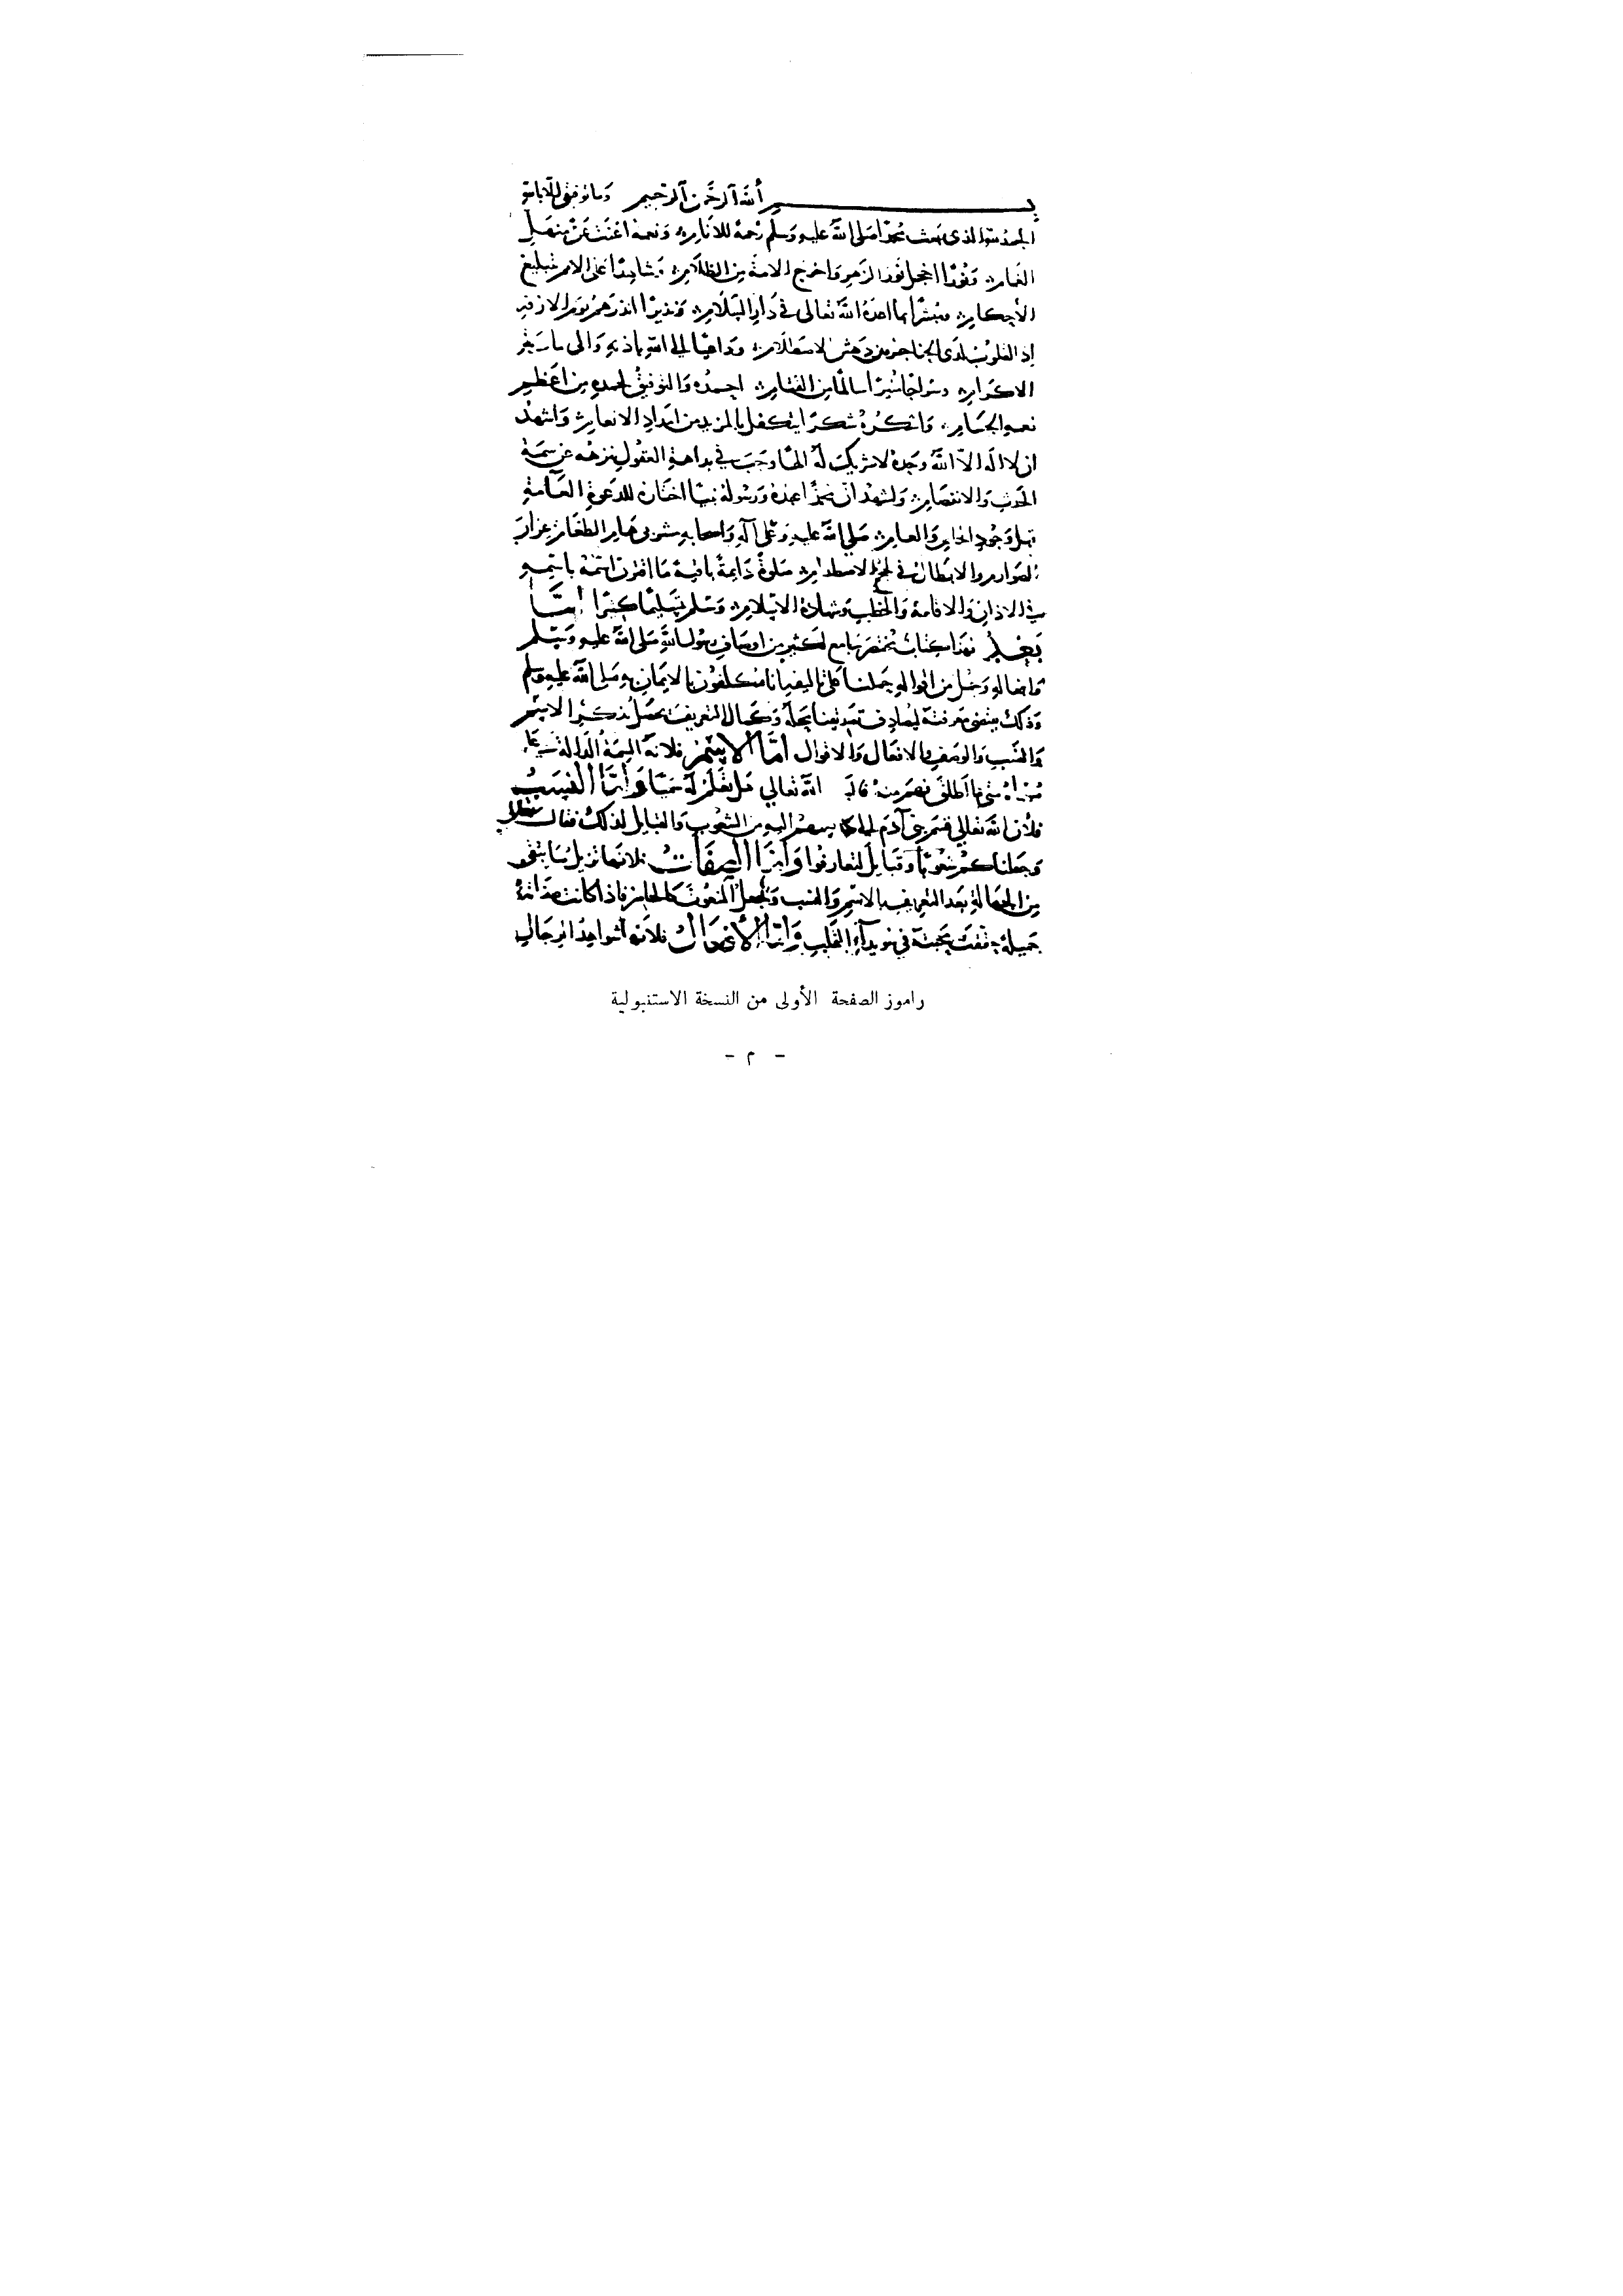 بسم الله الرحمن الرحيم وما توفيقي إلا بالله
الحمد لله الذي بعث محمدا صلى الله عليه وسلم رحمة للأنام ونعمة أغنت عن منهل
الغمام ونورا أخجل نور الزهر وأخرج الأمة من الظلام وشاهدا على الأمم بتبليغ
الأحكام ومبشرا بما أعده الله تعالى في دار السلام ونذيرا أنذرهم يوم الآزفة
إذ القلوب لدى الحناجر من دهش الاصطلام وداعيا إلى الله بإذنه وإلى
الإكرام وسراجا منيرا سالما من القتام أحمده والتوفيق لحمده من أعظم
نعمه الجسام وأشكره شكرا يتكفل بالمزيد من إمداد الإنعام وأشهد
أن لا إله إلا الله وحده لا شريك له إلها وجب في بداهة العقول تنزهه عن سمة
الحدث والانفصام وأشهد أن محمدا عبده ورسوله نبيا اختاره للدعوة العامة
قبل وجود الخاص والعام صلى الله عليه وعلى آله وأصحابه هام الطغاة
الصوارم والأبطال في الاصطدام صلوة دايمة باقية ما اقترن اسمه باسمه
في الأذان والإقامة والخطب وشهادة الإسلام وسلم تسليما كثيرا أمـا
بعد فهذا كتاب مختصر جامع لكثير من أوصاف رسول الله صلى الله عليه وسلم
وأفعاله وجمل من أقواله حملنا على تأليفه أنا مكلفون بالإيمان به صلى الله عليه وسلم
وذلك يقتضي معرفته ليصادف تصديقنا محله وكمال التعريف يحصل بذكر الاسم
والنسب والوصف والأفعال والأقوال أما الاسم فلأنه السمة الدالة على
متى ما أطلق قال الله تعالى هل تعلم له سميا وأما النسب
فلأن الله تعالى قسم بني آدم إلى ما من الشعوب والقبايل لذلك فقال تعالى
وجعلناكم شعوبا وقبايل لتعارفوا وأما الصفات فلأنها تزيل ما بقي
من الجهالة بعد التعريف بالاسم والنسب وتجعل المنعوت كالحاضر فإذا كانت صفاته
جميلة وقعت محبته في سويداء القلب وأما الأفعال فلأنها شواهد الرجال
راموز الصفحة الأولى من النسخة الاستنبولية
- م -